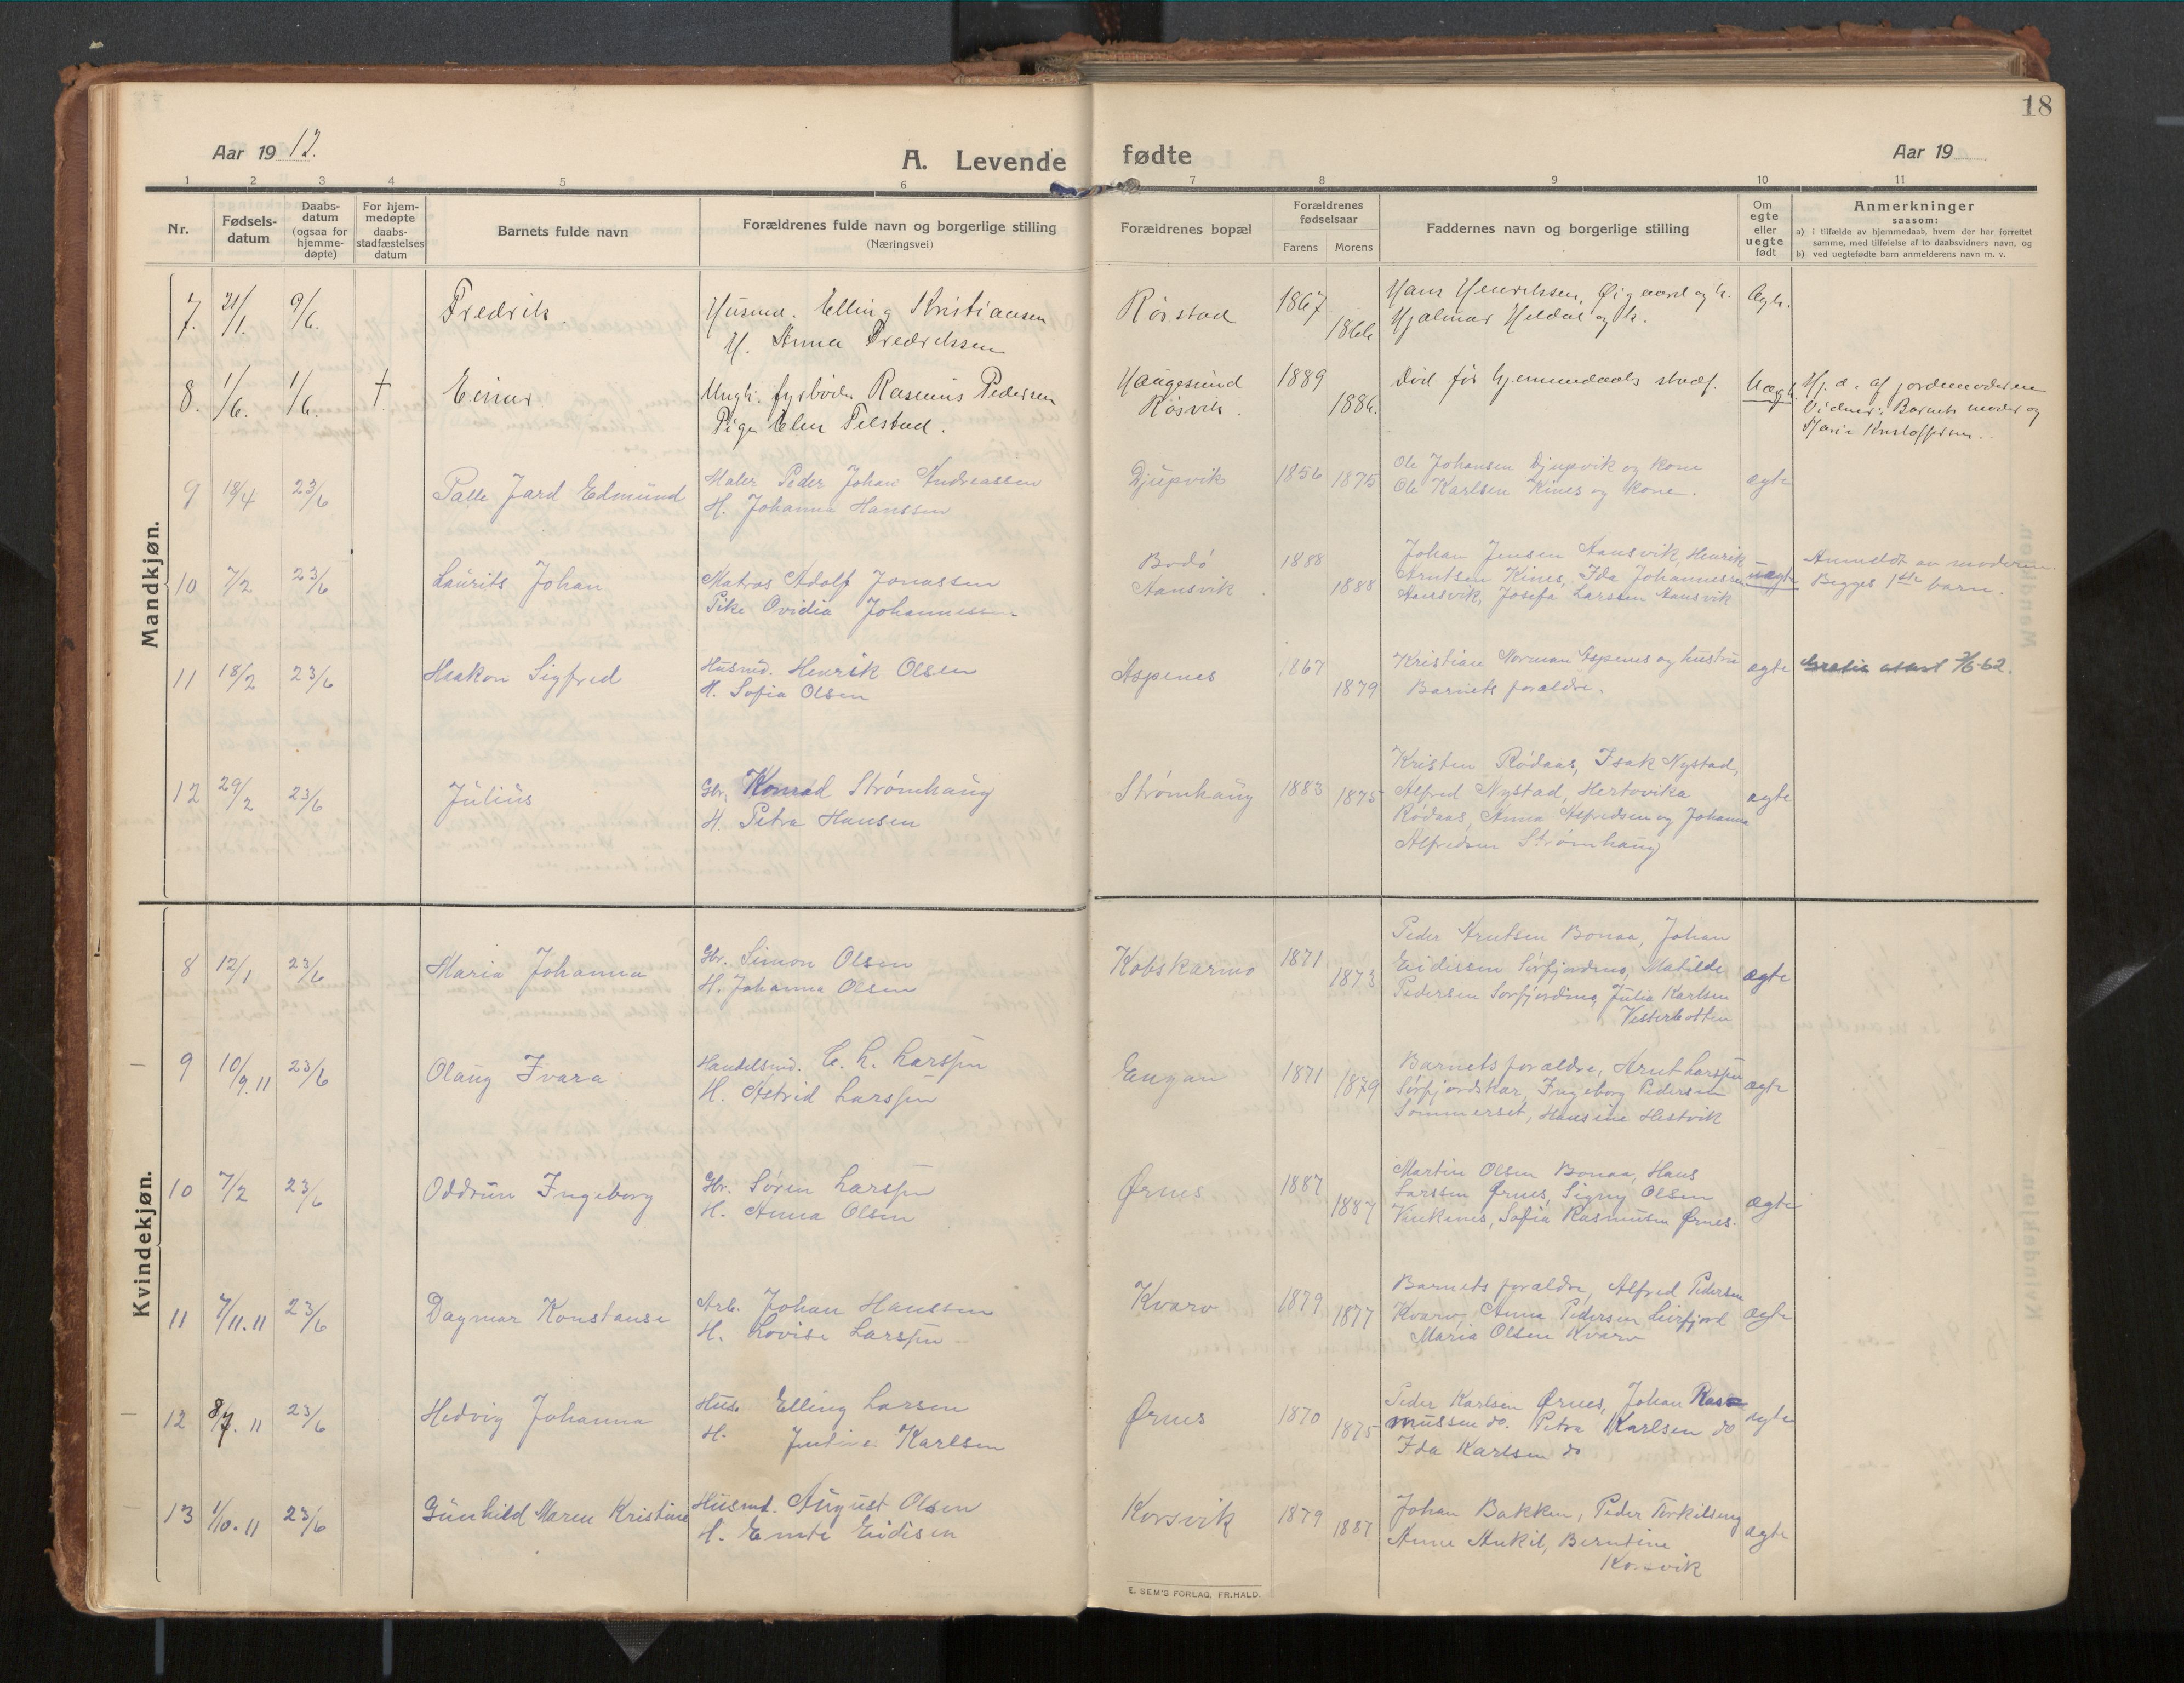 18
Aar 19 12.
A. Levende fødte
Aar 19
1 2 3 4 5 6 7 8 9 10 11
Nr.
Fødsels-
datum
Daabs-
datum
(ogsaa for
hjemme-
døpte)
For hjem-
medøpte
daabs-
stadfæstelses
datum
Barnets fulde navn
Forældrenes fulde navn og borgerlige stilling
(Næringsvei)
Forældrenes bopæl
Forældrenes
fødselsaar
Farens Morens
Faddernes navn og borgerlige stilling
Om
egte
eller
uegte
født
Anmerkninger
saasom:
a) i tilfælde av hjemmedaab, hvem der har forrettet
samme, med tilføielse af to daabsvidners navn, og
b) ved uegtefødte barn anmelderens navn m. v.
Mandkjøn.
7. 21/1. 9/6. Fredrik. Husmd. Elling Kristiansen
H. Anna Fredriksen
Rørstad 1867 1866 Hans Henriksen, Øigaard og h.
Hjalmar Heldal og h.
Ægte.
8. 1/6. 1/6. † Einar. Ungk. fyrbøder Rasmus Pedersen
Pige Elen Filstad.
Haugesund 1889
Røsvik. 1886.
død før hjemmedaabs stadf. Uægt.
Hj. d. af jordemoderen
Vidner: Barnets moder og
Maria Kristoffersen.
9 18/4 23/6 Palle Jard Edmund Maler Peder Johan Andreassen
H. Johanna Hanssen
Djupvik 1856 1875 Ole Johansen Djupvik og kone
Ole Karlsen Kines og kone.
ægte
10 7/2 23/6 Laurits Johan Matros Adolf Jonassen
Pike Ovidia Johannessen
Bodø 1888
Aansvik. 1888
Johan Jensen Aansvik, Henrik
Arntsen Kines, Ida Johannessen
Aansvik, Josefa Larssen Aansvik
uægte
Anmeldt av moderen.
Begges 1ste barn.
11 18/2 23/6 Haakon Sigfred Husmd. Henrik Olsen
H. Sofia Olsen
Aspenes 1867 1879 Kristian Norman Espenes og hustru
Barnets forældre.
ægte Gratis attest 7/6-62.
12 29/2 23/6 Julius Gbr. Konrad Strømhaug
H. Petra Hansen
Strømhaug 1883 1875 Kristen Rødaas, Isak Nystad,
Alfred Nystad, Hertovika
Rødaas, Anna Alfredsen og Johanna
Alfredsen Strømhaug
ægte
Kvindekjøn.
8 12/1 23/6 Maria Johanna Gbr. Simon Olsen
H. Johanna Olsen
Kobskarmo 1871 1873 Peder Arntsen Bonaa, Johan
Eidissen Sørfjordmo, Matilde
Pedersen Sørfjordmo, Julia Karlsen
Vesterbotten
ægte
9 10/9. 11 23/6 Olaug Ivara Handelsmd. C. L. Larssen
H. Astrid Larssen
Engan 1871 1879 Barnets forældre, Arnt Larssen
Sørfjordskar, Ingeborg Pedersen
Sommerset, Hansine Hestvik
ægte
10 7/2 23/6 Oddrun Ingeborg Gbr. Søren Larssen
H. Anna Olsen
Ørnes 1887 1887 Martin Olsen Bonaa, Hans
Larssen Ørnes, Signy Olsen
Vinkenes, Sofia Rasmussen Ørnes.
ægte
11 7/11. 11 23/6 Dagmar Konstanse Arb. Johan Hanssen
H. Lovise Larssen
Kvarv 1879 1877 Barnets forældre, Alfred Pedersen
Kvarv, Anna Pedersen Leirfjord
Maria Olsen Kvarv
ægte
12 8/7. 11 23/6 Hedvig Johanna Hus. Elling Larsen
H. Karlsen
Ørnes 1870 1875 Peder Karlsen Ørnes, Johan Ras-
mussen do. Petra Karlsen do
Ida Karlsen do
ægte
13 1/10. 11 23/6 Gunhild Maren Kristine Husmd. August Olsen
H. Emte Eidisen
Korsvik 1879 1887 Johan Bakken, Peder Torkilseng
Anne Ankil, Berntine
Korsvik
ægte
E. SEM'S FORLAG, FR.HALD.